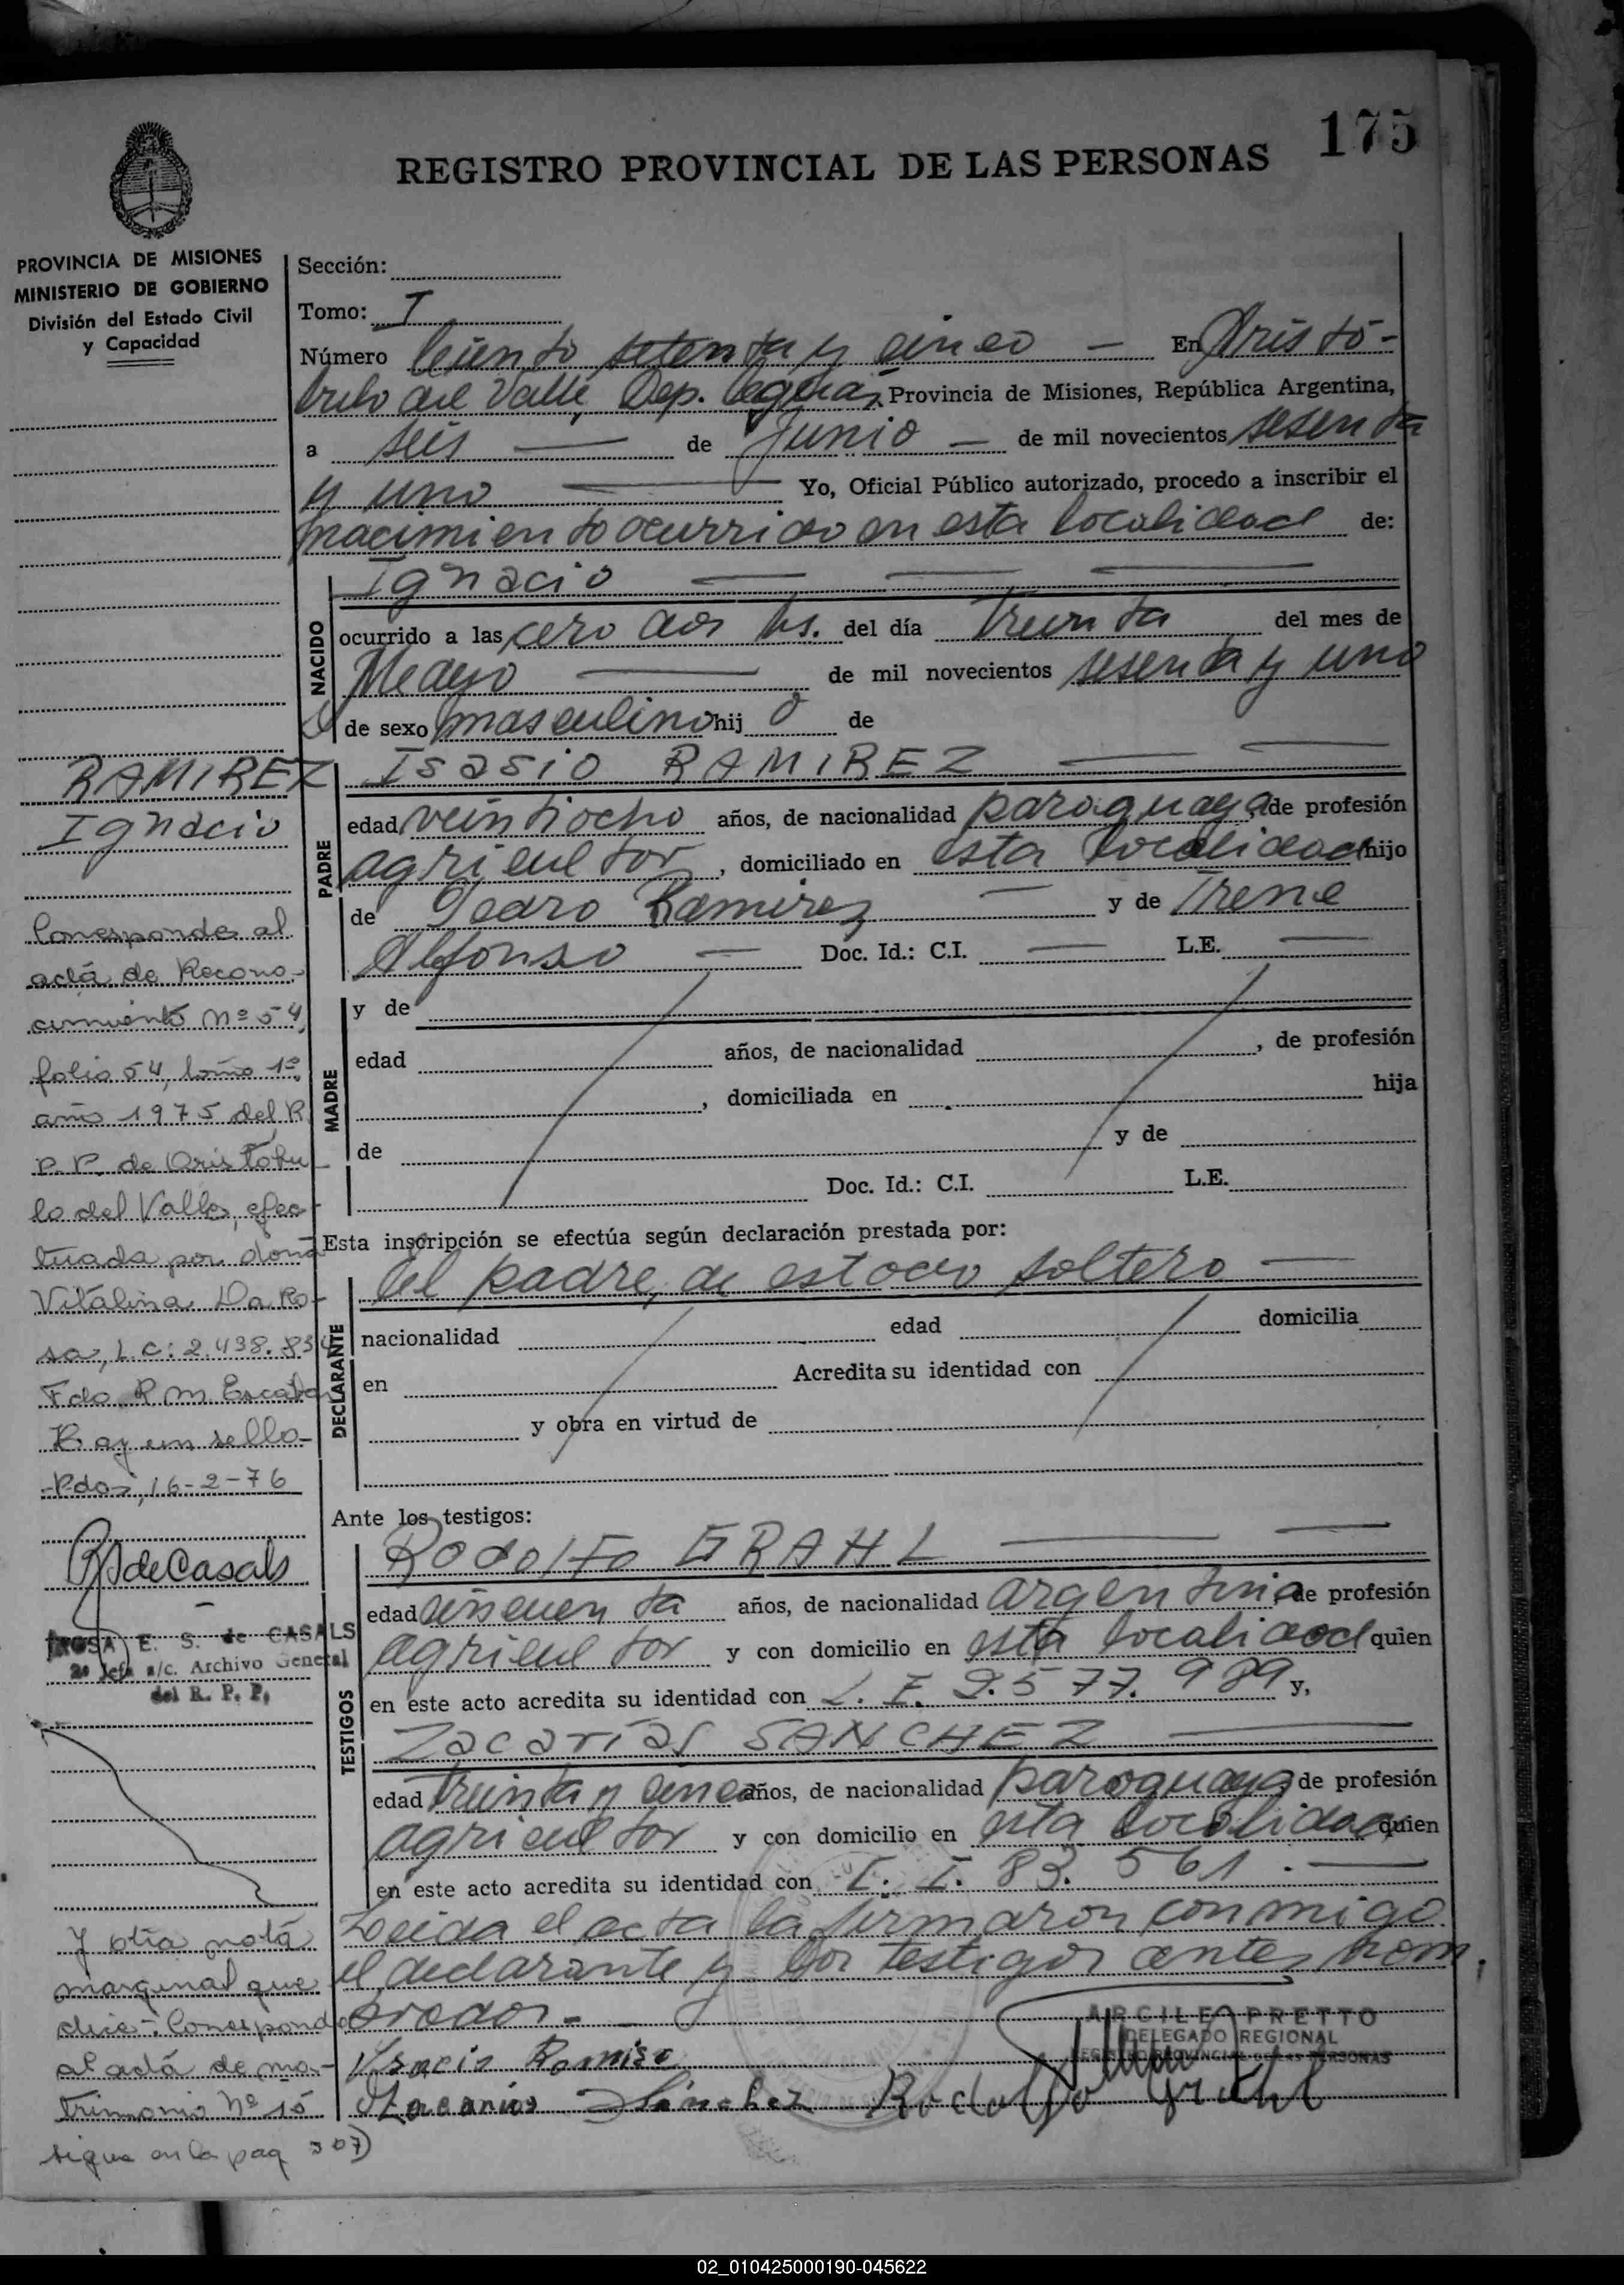 175
REGISTRO PROVINCIAL DE LAS PERSONAS
PROVINCIA DE MISIONES
MINISTERIO DE GOBIERNO
División del Estado Civil
y Capacidad
Sección:
Tomo: I
Número Ciento setenta y cinco — En Aristó-
bulo del Valle, Dep. Caguas, Provincia de Misiones, República Argentina,
a seis — de Junio — de mil novecientos sesenta
y uno — Yo, Oficial Público autorizado, procedo a inscribir el
nacimiento ocurrido en esta localidad de:
NACIDO
Ignacio — — —
ocurrido a las cero dos hs. del día Treinta del mes de
Mayo — de mil novecientos sesenta y uno
de sexo masculino hij o de
PADRE
Isasio RAMIREZ — —
edad veintiocho años, de nacionalidad paraguaya, de profesión
agricultor, domiciliado en esta localidad hijo
de Pedro Ramirez — y de Irene
Alfonso — Doc. Id.: C.I. — L.E. —
MADRE
y de
edad años, de nacionalidad , de profesión
, domiciliada en hija
de y de
Doc. Id.: C.I. L.E.
Esta inscripción se efectúa según declaración prestada por:
DECLARANTE
el padre, de estado soltero —
nacionalidad edad domicilia
en Acredita su identidad con
y obra en virtud de
Ante los testigos:
TESTIGOS
Rodolfo GRAHL — —
edad cincuenta años, de nacionalidad argentina, de profesión
agricultor y con domicilio en esta localidad quien
en este acto acredita su identidad con L. E. 2.577.989 y,
Zacarías SANCHEZ —
edad treinta y cinco años, de nacionalidad paraguaya de profesión
agricultor y con domicilio en esta localidad quien
en este acto acredita su identidad con C. I. 83.561. —
Leida el acta la firmaron conmigo
el declarante y los testigos antes nom-
brados. —
ARCILE PRETTO
DELEGADO REGIONAL
REGISTRO PROVINCIAL DE LAS PERSONAS
Ramires
Zacarias Sánchez Rodolfo Grahl
RAMIREZ
Ignacio
Corresponde al
actá de Recono-
cimiento nº 54,
folio 54, tomo 1º,
año 1975 del R.
P. P. de Aristóbu-
lo del Valle, efec-
tuada por doña
Vitalina Da Ro-
sa, L.C: 2.438.834
Fdo. R. M. Escobar
Hay un sello-
Pdas, 16-2-76
RSdeCasals
ROSA E. S. de CASALS
2º Jefa a/c. Archivo General
del R. P. P.
Y otra notá
marginal que
dice: Corresponde
al actá de ma-
trimonio Nº 15
sigue en la pag 307)
02_010425000190-045622